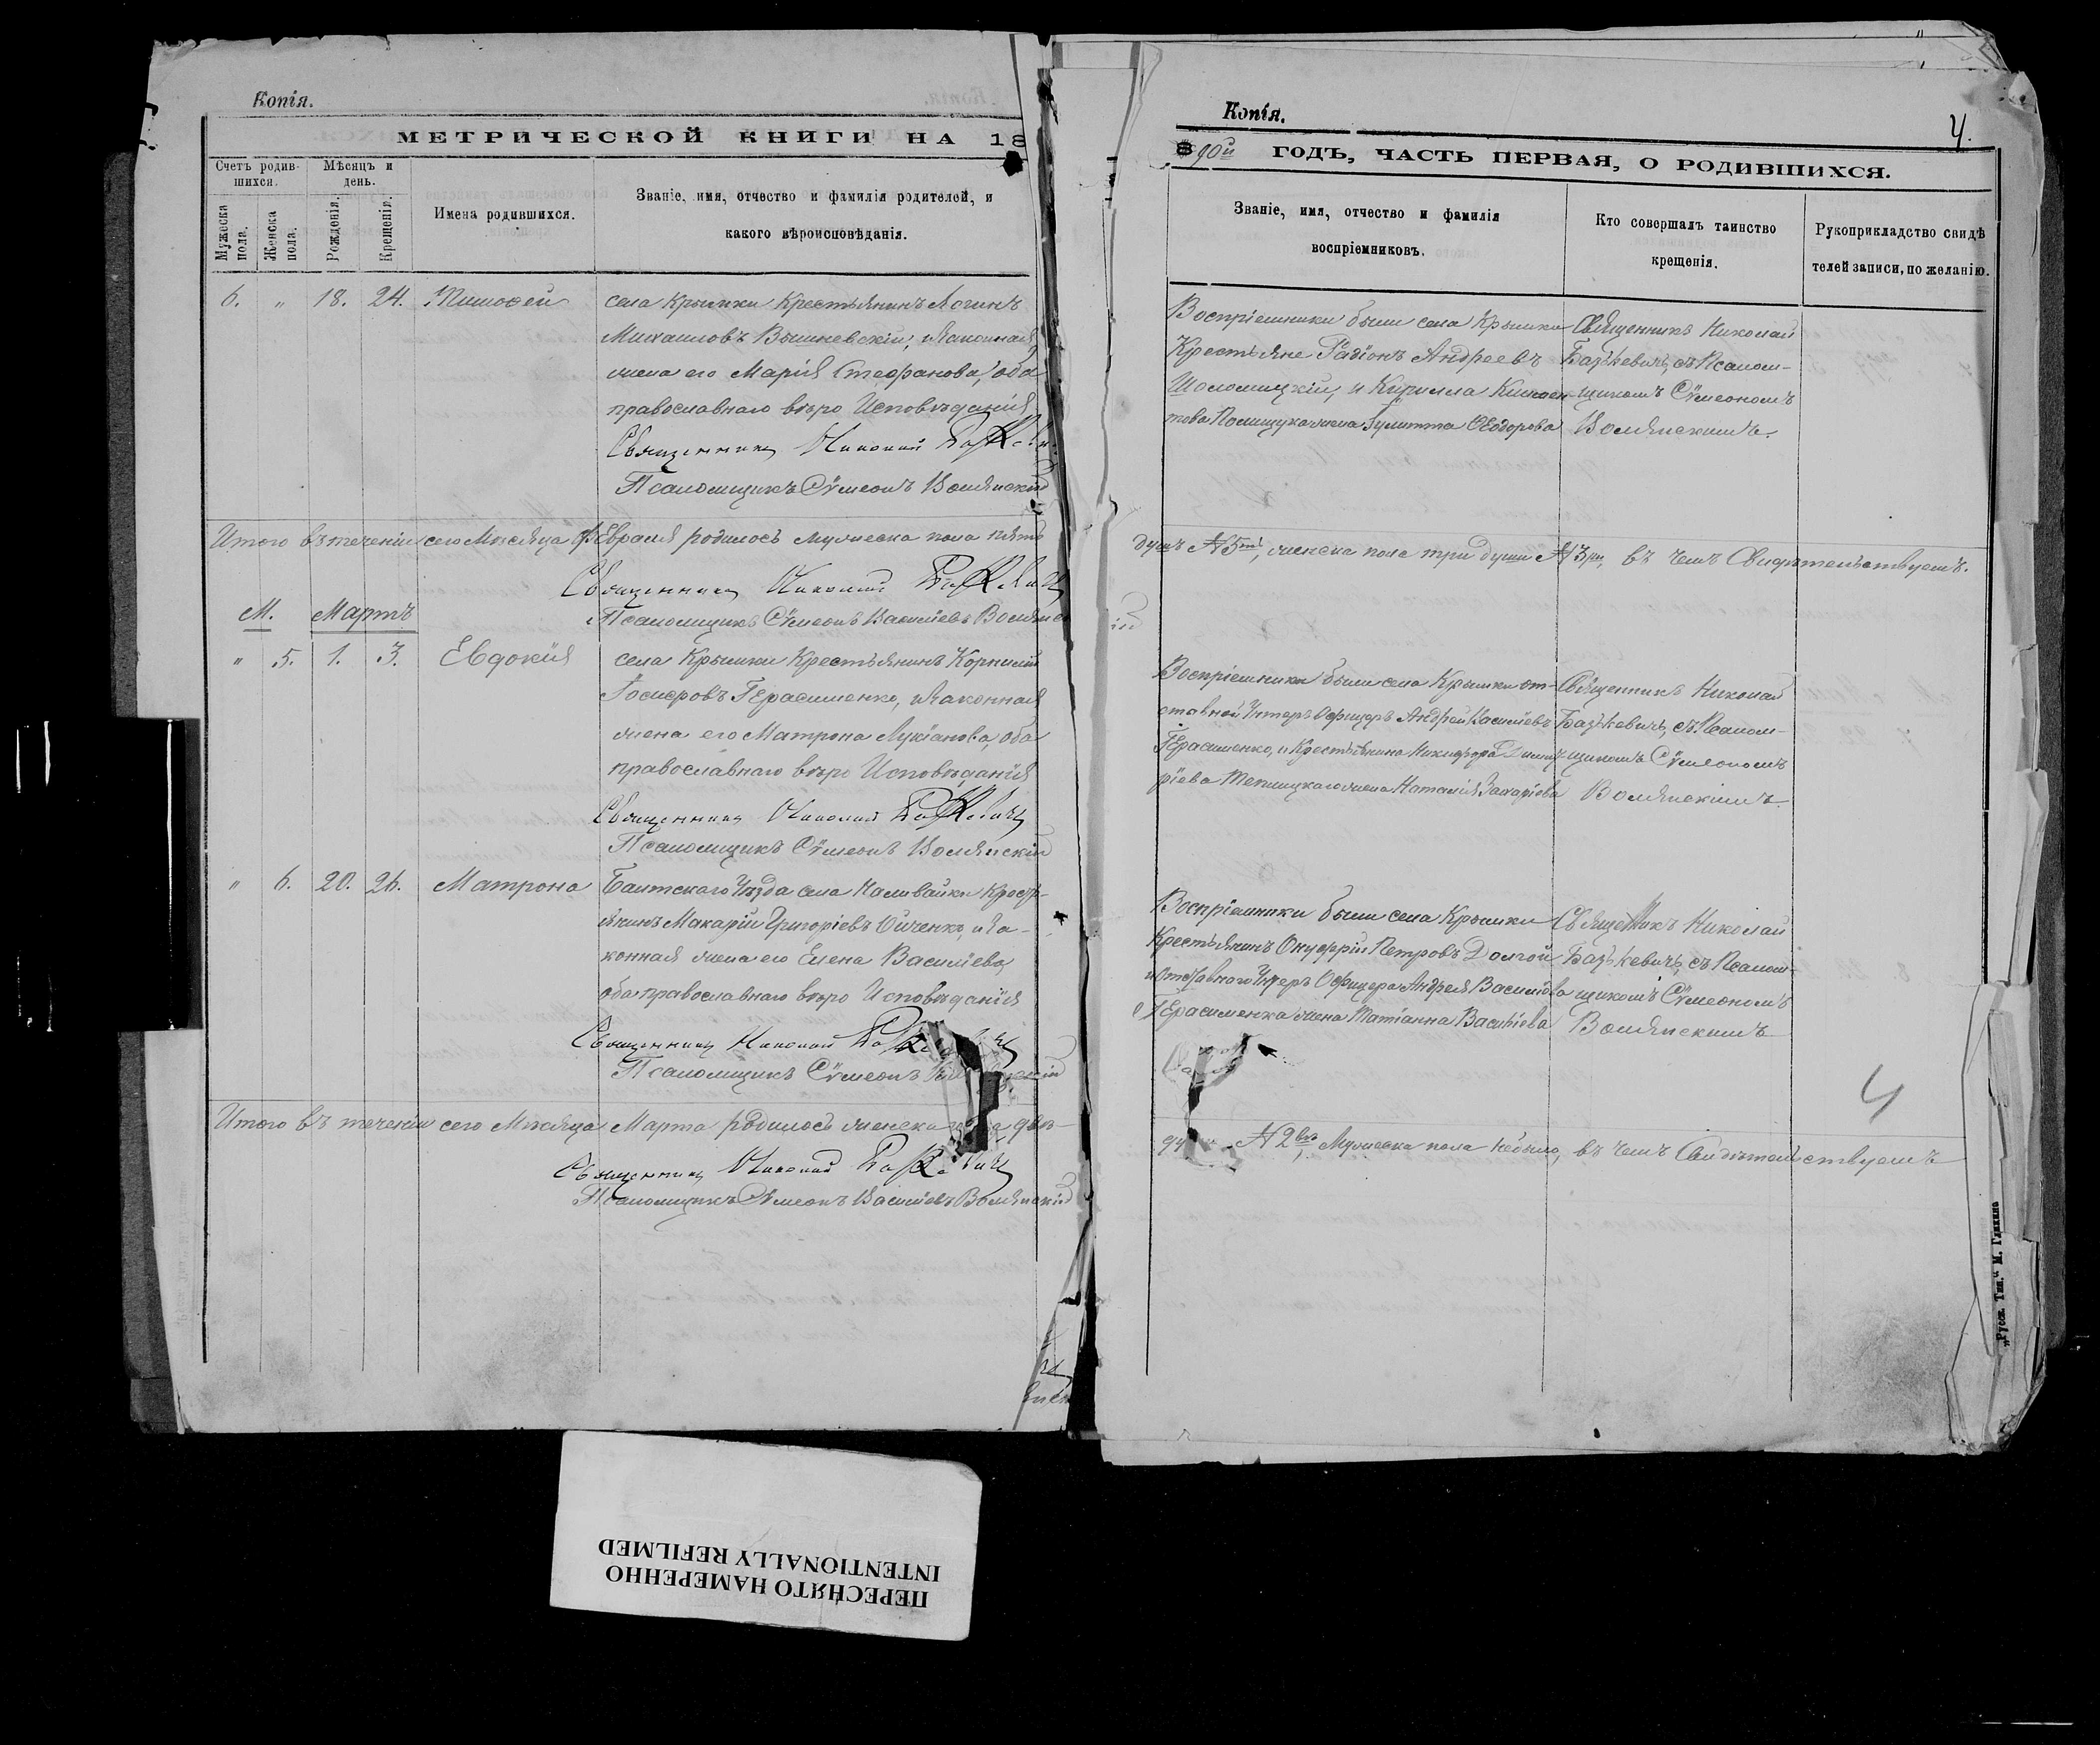 Копія.
МЕТРИЧЕСКОЙ КНИГИ НА 18
Счетъ родив-
шихся.
Мѣсяцъ и
день.
Мужеска
пола.
Женска
пола.
Рожденія.
Крещенія.
Имена родившихся.
Званіе, имя, отчество и фамилія родителей, и
какого вѣроисповѣданія.
6. " 18. 24. Тимофей
села Крымки Крестьянинъ Логинъ
Михаиловъ Вышневскій, и законная
жена его Марія Стефанова, оба
православнаго вѣро Исповѣданія
Священникъ Николай
Псаломщикъ Сѵмеонъ Волянскій
Итого въ теченіи сего Мѣсяца Февраля родилось мужеска пола пять
Священникъ Николай
М. Мартъ
Псаломщикъ Сѵмеонъ Василіевъ
" 5. 1. 3. Евдокія
села Крымки Крестьянинъ Корнилій
Герасименко, и законная
жена его Матрона Лукіанова, оба
православнаго вѣро Исповѣданія
Священникъ Николай
Псаломщикъ Сѵмеонъ Волянскій
" 6. 20. 26. Матрона
Балтскаго Уѣзда села Наливайки Крест-
янинъ Макарій Григоріевъ и За-
конная жена его Елена Василіева,
оба православнаго вѣро Исповѣданія
Священникъ Николай
Псаломщикъ Сѵмеонъ
Итого въ теченіи сего Мѣсяца Марта родилось женска пола двѣ
Священникъ Николай
Псаломщикъ Сѵмеонъ Василіевъ Волянскій
Копія.
4.
890й ГОДЪ, ЧАСТЬ ПЕРВАЯ, О РОДИВШИХСЯ.
Званіе, имя, отчество и фамилія
воспріемниковъ.
Кто совершалъ таинство
крещенія.
Рукоприкладство свидѣ
телей записи, по желанію.
Воспріемники были села Крымки
Крестьяне Радіонъ Андреевъ
Шоломицкій, и Кирилла
Полищука жена Іулитта Ѳеодорова
Священникъ Николай
Базѣкевичъ, съ Псалом-
щикомъ Сѵмеономъ
Волянскимъ.
душъ №5ть, женска пола три души №3ри, въ чемъ Свидѣтельствуемъ.
Воспріемники были села Крымки от-
ставной Унтеръ Офицеръ Андрей Василіевъ
Герасименко, и Крестьянина Никифора Димит-
ріева Теплицкаго жена Наталія Захаріева
Священникъ Николай
Базѣкевичъ, съ Псалом-
щикомъ Сѵмеономъ
Волянскимъ.
Воспріемники были села Крымки
Крестьянинъ Онуфрій Петровъ Долгой
и отставного Унтеръ Офицера Андрея Василіева
Герасименка жена Татіанна Василіева
Священникъ Николай
Базѣкевичъ, съ Псалом-
щикомъ Сѵмеономъ
Волянскимъ
4
№2вѣ, Мужеска пола небыло, въ чемъ Свидѣтельствуемъ
„Русск. Тип." М. Гликина
ПЕРЕСНЯТО НАМЕРЕННО
INTENTIONALLY REFILMED